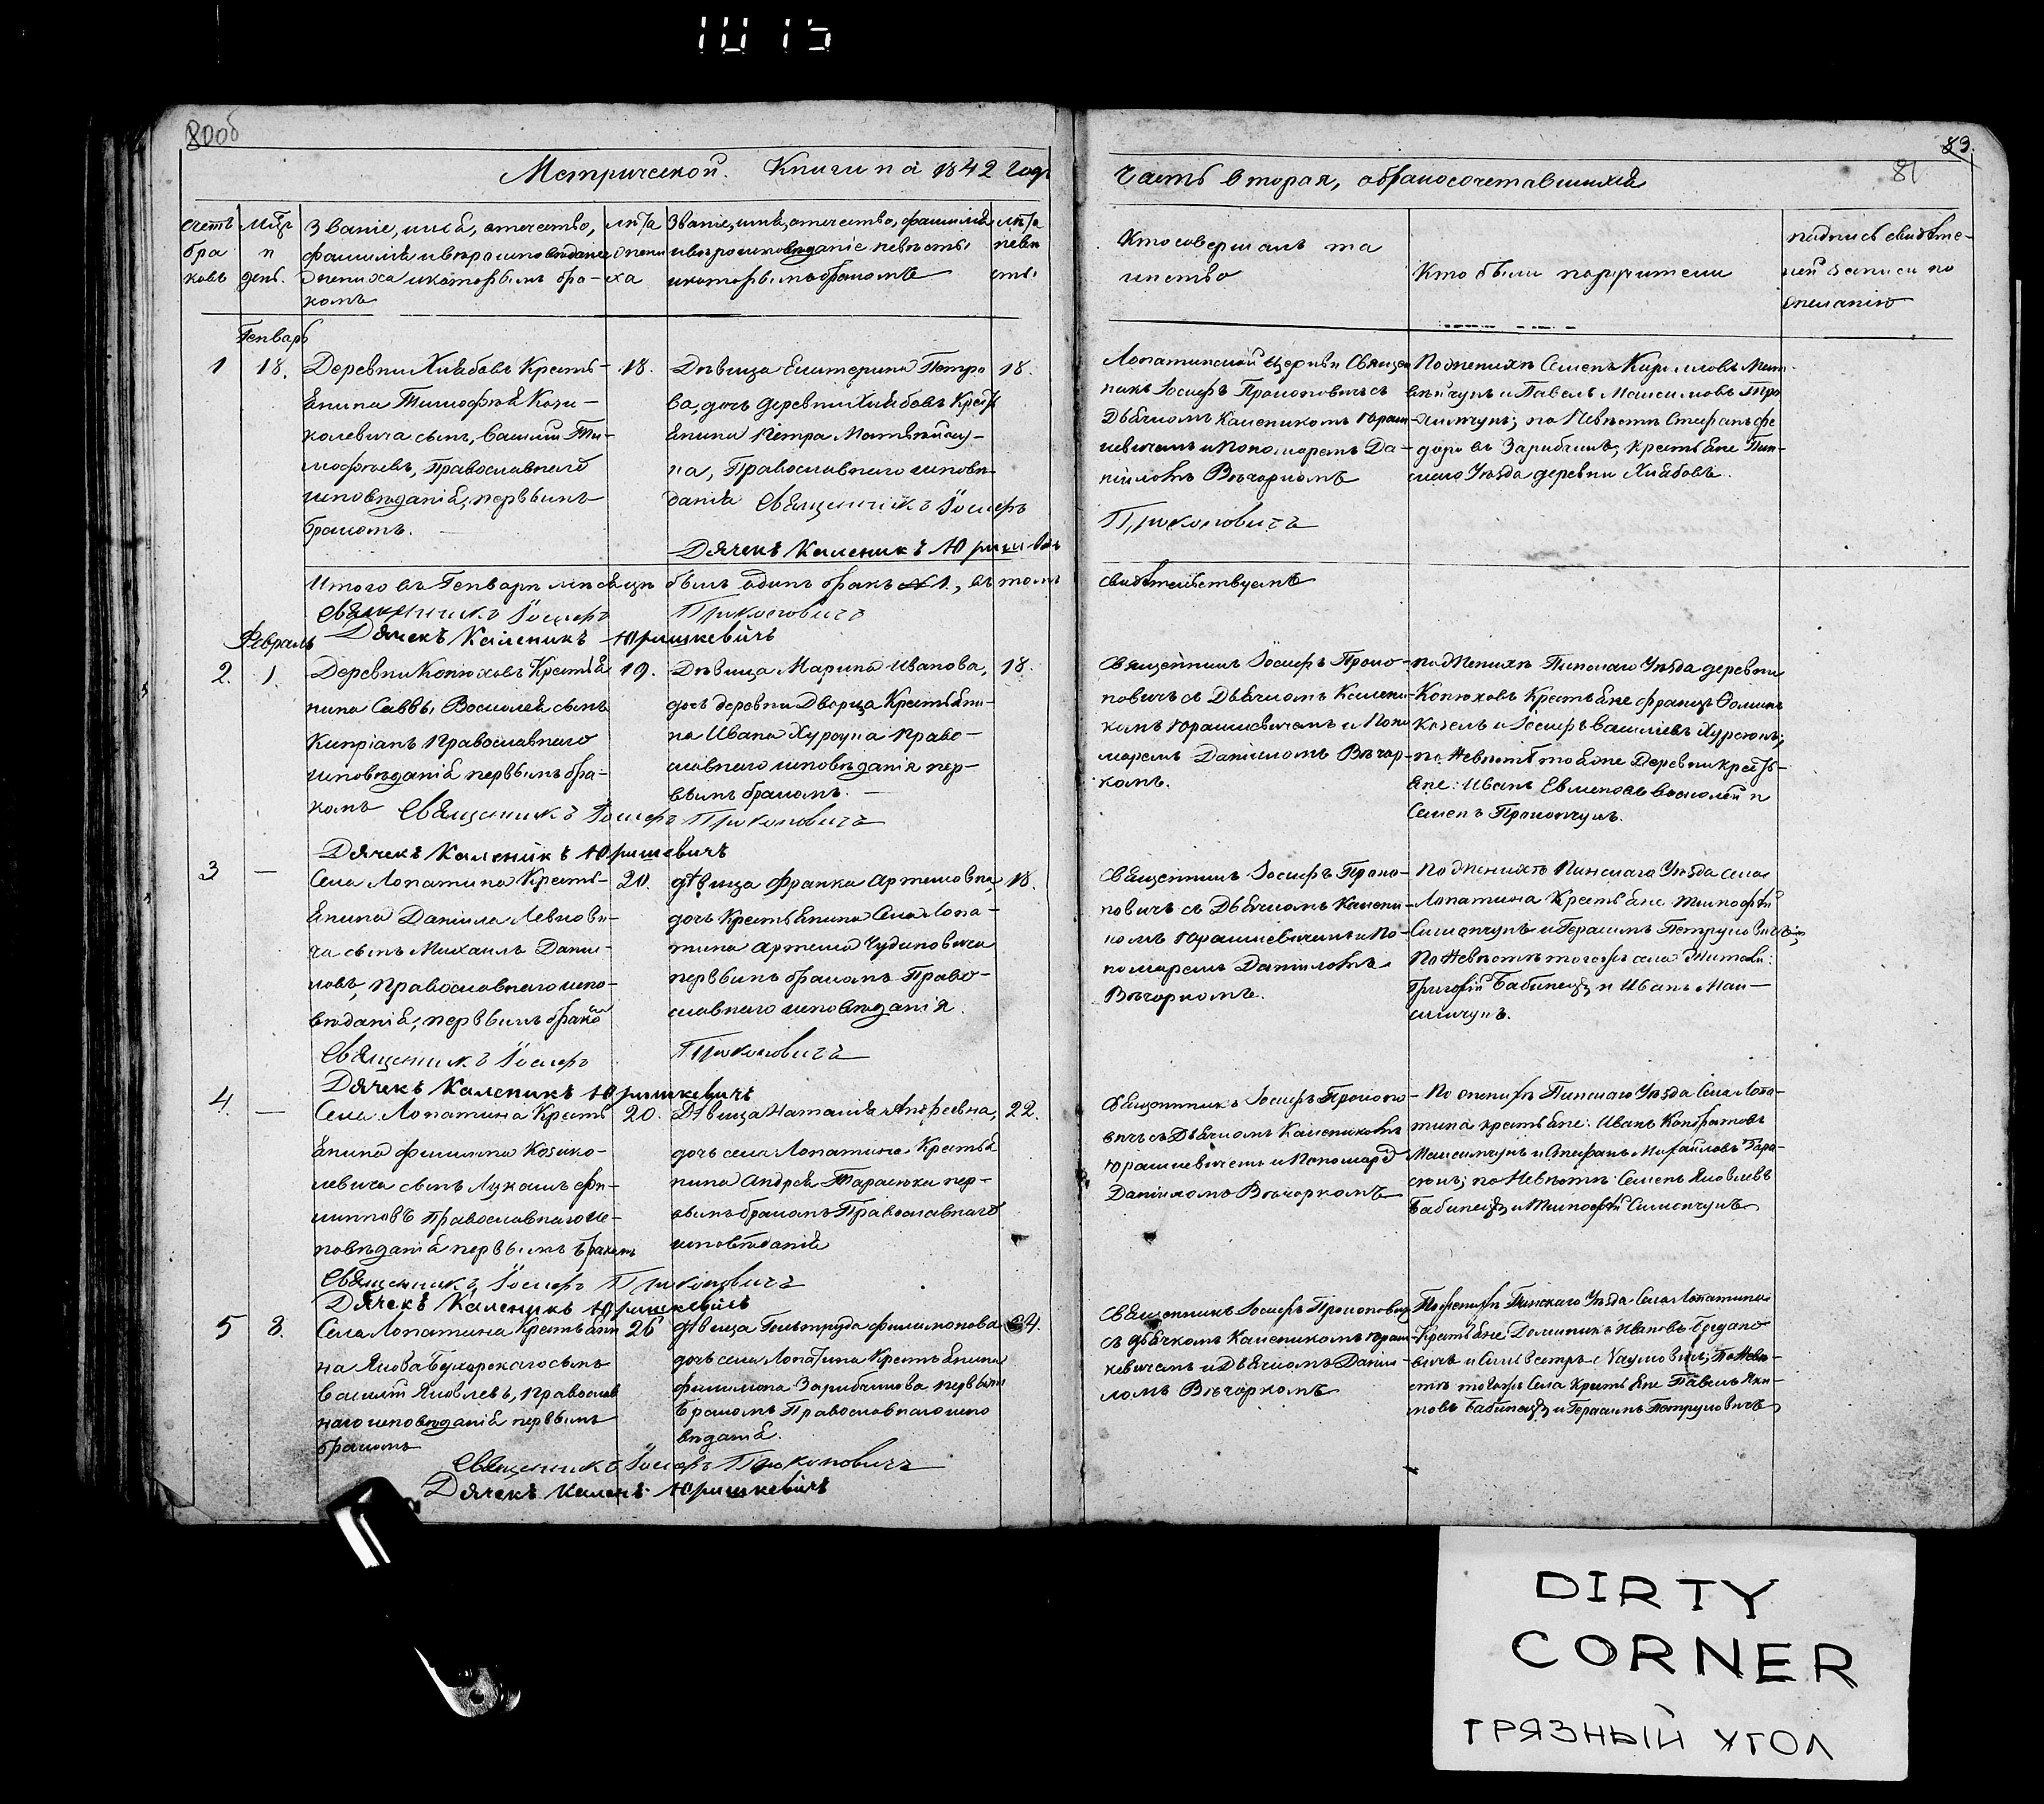 1015
80об
83.
81
Метрической Книги на 1842 годъ
Часть вторая, о бракосочетавшихся
Счетъ
бра
ковъ
Мѣц.
и
день.
Званіе, имя, отчество,
фамилія и вѣроисповѣданіе
жениха и которымъ бра-
комъ
лѣта
жени
ха
Званіе, имя, отчество, фамилія
и вѣроисповѣданіе невѣсты
и которымъ бракомъ
лѣта
невѣ
сты
Кто совершалъ та
инство
Кто были поручители
подпись свидѣте-
лей записи по
желанію
Генварь
1
18.
Деревни Хлябовъ Кресть-
янина Тимофея Кози-
колевича сынъ, Василій Ти-
мофѣевъ, Православнаго
исповѣданія, первымъ
бракомъ.
18.
Дѣвица Екатерина Петро
ва, дочь деревни Хлябовъ Крест
янина Петра Матвѣйчу-
на, Православнаго исповѣ-
данія Священникъ Іосифъ
Дячекъ Каленикъ
18.
Лопатинской Церкви Священ
никъ Іосифъ Прокоповичъ съ
Дьячкомъ Каленикомъ Юраш-
кевичемъ и Пономаремъ Да-
ніиломъ Вѣчоркомъ
Прокоповичъ
По женихѣ Семенъ Кириловъ Мат-
вѣйчукъ и Павелъ Максимовъ
по Невѣстѣ Стефанъ Фе
доровъ крестьяне Пин-
скаго Уѣзда деревни Хлябовъ.
Итого въ Генварѣ мѣсяцѣ былъ одинъ бракъ №1., въ томъ
свидѣтельствуемъ
Священникъ Іосифъ Прокоповичъ
Дячекъ Каленикъ Юришкевичъ
Февраль
2.
1.
Деревни Конюховъ Крестья
нина Саввы Василея сынъ
Кипріанъ Православнаго
исповѣданія первымъ бра-
комъ Священникъ Іосифъ Прокоповичъ
Дячекъ Каленикъ Юришевичъ
19.
Дѣвица Марина Иванова,
дочь деревни Дворца Крестьяни-
на Ивана Право-
славнаго исповѣданія пер-
вымъ бракомъ.
18.
Священникъ Іосифъ Проко-
повичъ съ Дьячкомъ Калени-
комъ Юрашкевичемъ и Поно
маремъ Даніиломъ Вѣчор-
комъ.
по женихѣ Пинскаго Уѣзда деревни
Конюховъ Крестьяне Францъ
Козелъ и Іосифъ Васильевъ
по Невѣстѣ тояже Деревни кресть-
яне: Иванъ и
Семенъ Прокопчукъ.
3
—
Села Лопатина Кресть-
янина Даніила Левкови-
ча сынъ Михаилъ Дани-
ловъ, Православнаго испо-
вѣданія, первымъ брако
Священникъ Іосифъ Прокоповичъ
Дячекъ Каленикъ Юришкевичъ
20.
дѣвица Франка Артемовна,
дочь Крестьянина Села Лопа-
тина Артема Чудиновича
первымъ бракомъ Право-
славнаго исповѣданія.
18.
Священникъ Іосифъ Проко-
повичъ съ Дьячкомъ Калени-
комъ Юрашкевичемъ и По-
номаремъ Даніиломъ
Вѣчоркомъ.
По женихѣ Пинскаго Уѣзда села
Лопатина Крестьяне Тимофѣй
Симончукъ и Герасимъ Петруковичъ;
По Невѣстѣ тогожъ села жители:
Григорій Бабинецъ и Иванъ Мак-
симчукъ.
4.
—
Села Лопатина Кресть
янина Филиппа Козико-
левича сынъ Лукашъ Фи-
липповъ Православнаго Ис-
повѣданія первымъ бракомъ
Священникъ Іосифъ Прокоповичъ
Дячекъ Каленикъ Юришкевичъ
20.
Дѣвица Наталія Андреевна,
дочь села Лопатина Крестья
нина Андрея Тарасюка пер-
вымъ бракомъ Православнаго
исповѣданія
22.
Священникъ Іосифъ Прокопо-
вичъ съ Дьячкомъ Калеником
Юрашкевичемъ и Пономаре
Даніиломъ Вѣчоркомъ
По женихѣ Пинскаго Уѣзда Села Лопа-
тина крестьяне: Иванъ Кондратовъ
Максимчукъ и Стефанъ Михайловъ Тара-
сюкъ; по Невѣстѣ: Семенъ Яковлевъ
Бабинецъ и Тимофѣй Симончукъ
5
8.
Села Лопатина Крестьяни
на Якова сынъ
Василій Яковлевъ, православ
наго исповѣданія первымъ
бракомъ
Священникъ Іосифъ Прокоповичъ
Дячекъ Кален. Юришкевичъ
26
дѣвица Гельтруда Филимонова
дочь села Лопатина Крестьянина
Филимона первымъ
бракомъ Православнаго испо
вѣданія.
24.
Священникъ Іосифъ Прокопович
съ дьячкомъ Калеником Юраш-
кевичемъ и Дьячкомъ Даніи-
ломъ Вѣчоркомъ
По женихѣ Пинскаго Уѣзда Села Лопатина
Крестьяне: Доминикъ Ивановъ Богдано
вичъ и Сильвестръ Наумовичъ; По Невѣ-
стѣ тогожъ Села Крестьяне Павелъ Яки-
мовъ Бабинецъ и Герасимъ Петруковичъ
DIRTY
CORNER
ГРЯЗНЫЙ УГОЛ